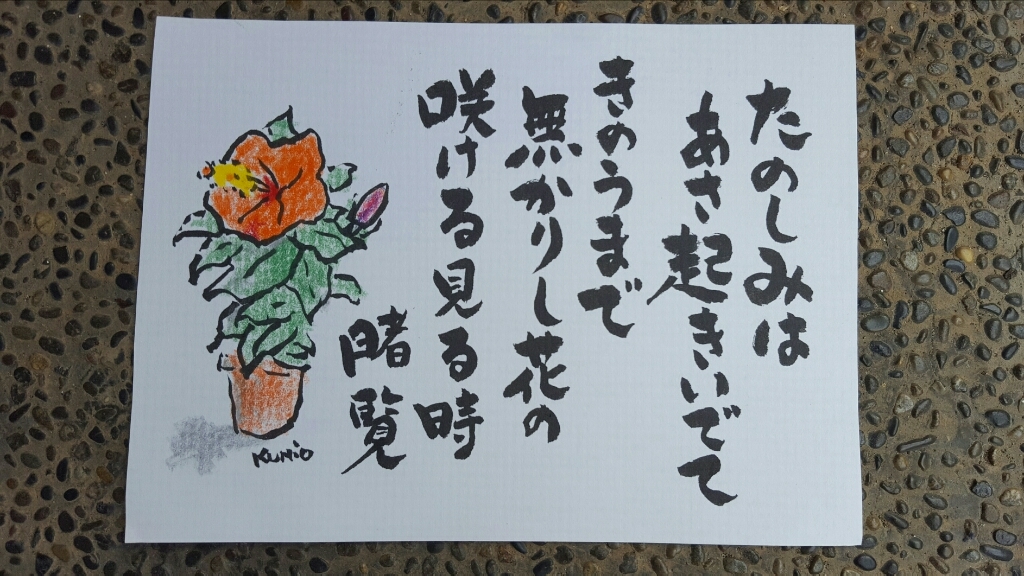 たのしみは
あさ起きいでて
きのうまで
無かりし花の
咲ける見る時
曙覧
KUMIO